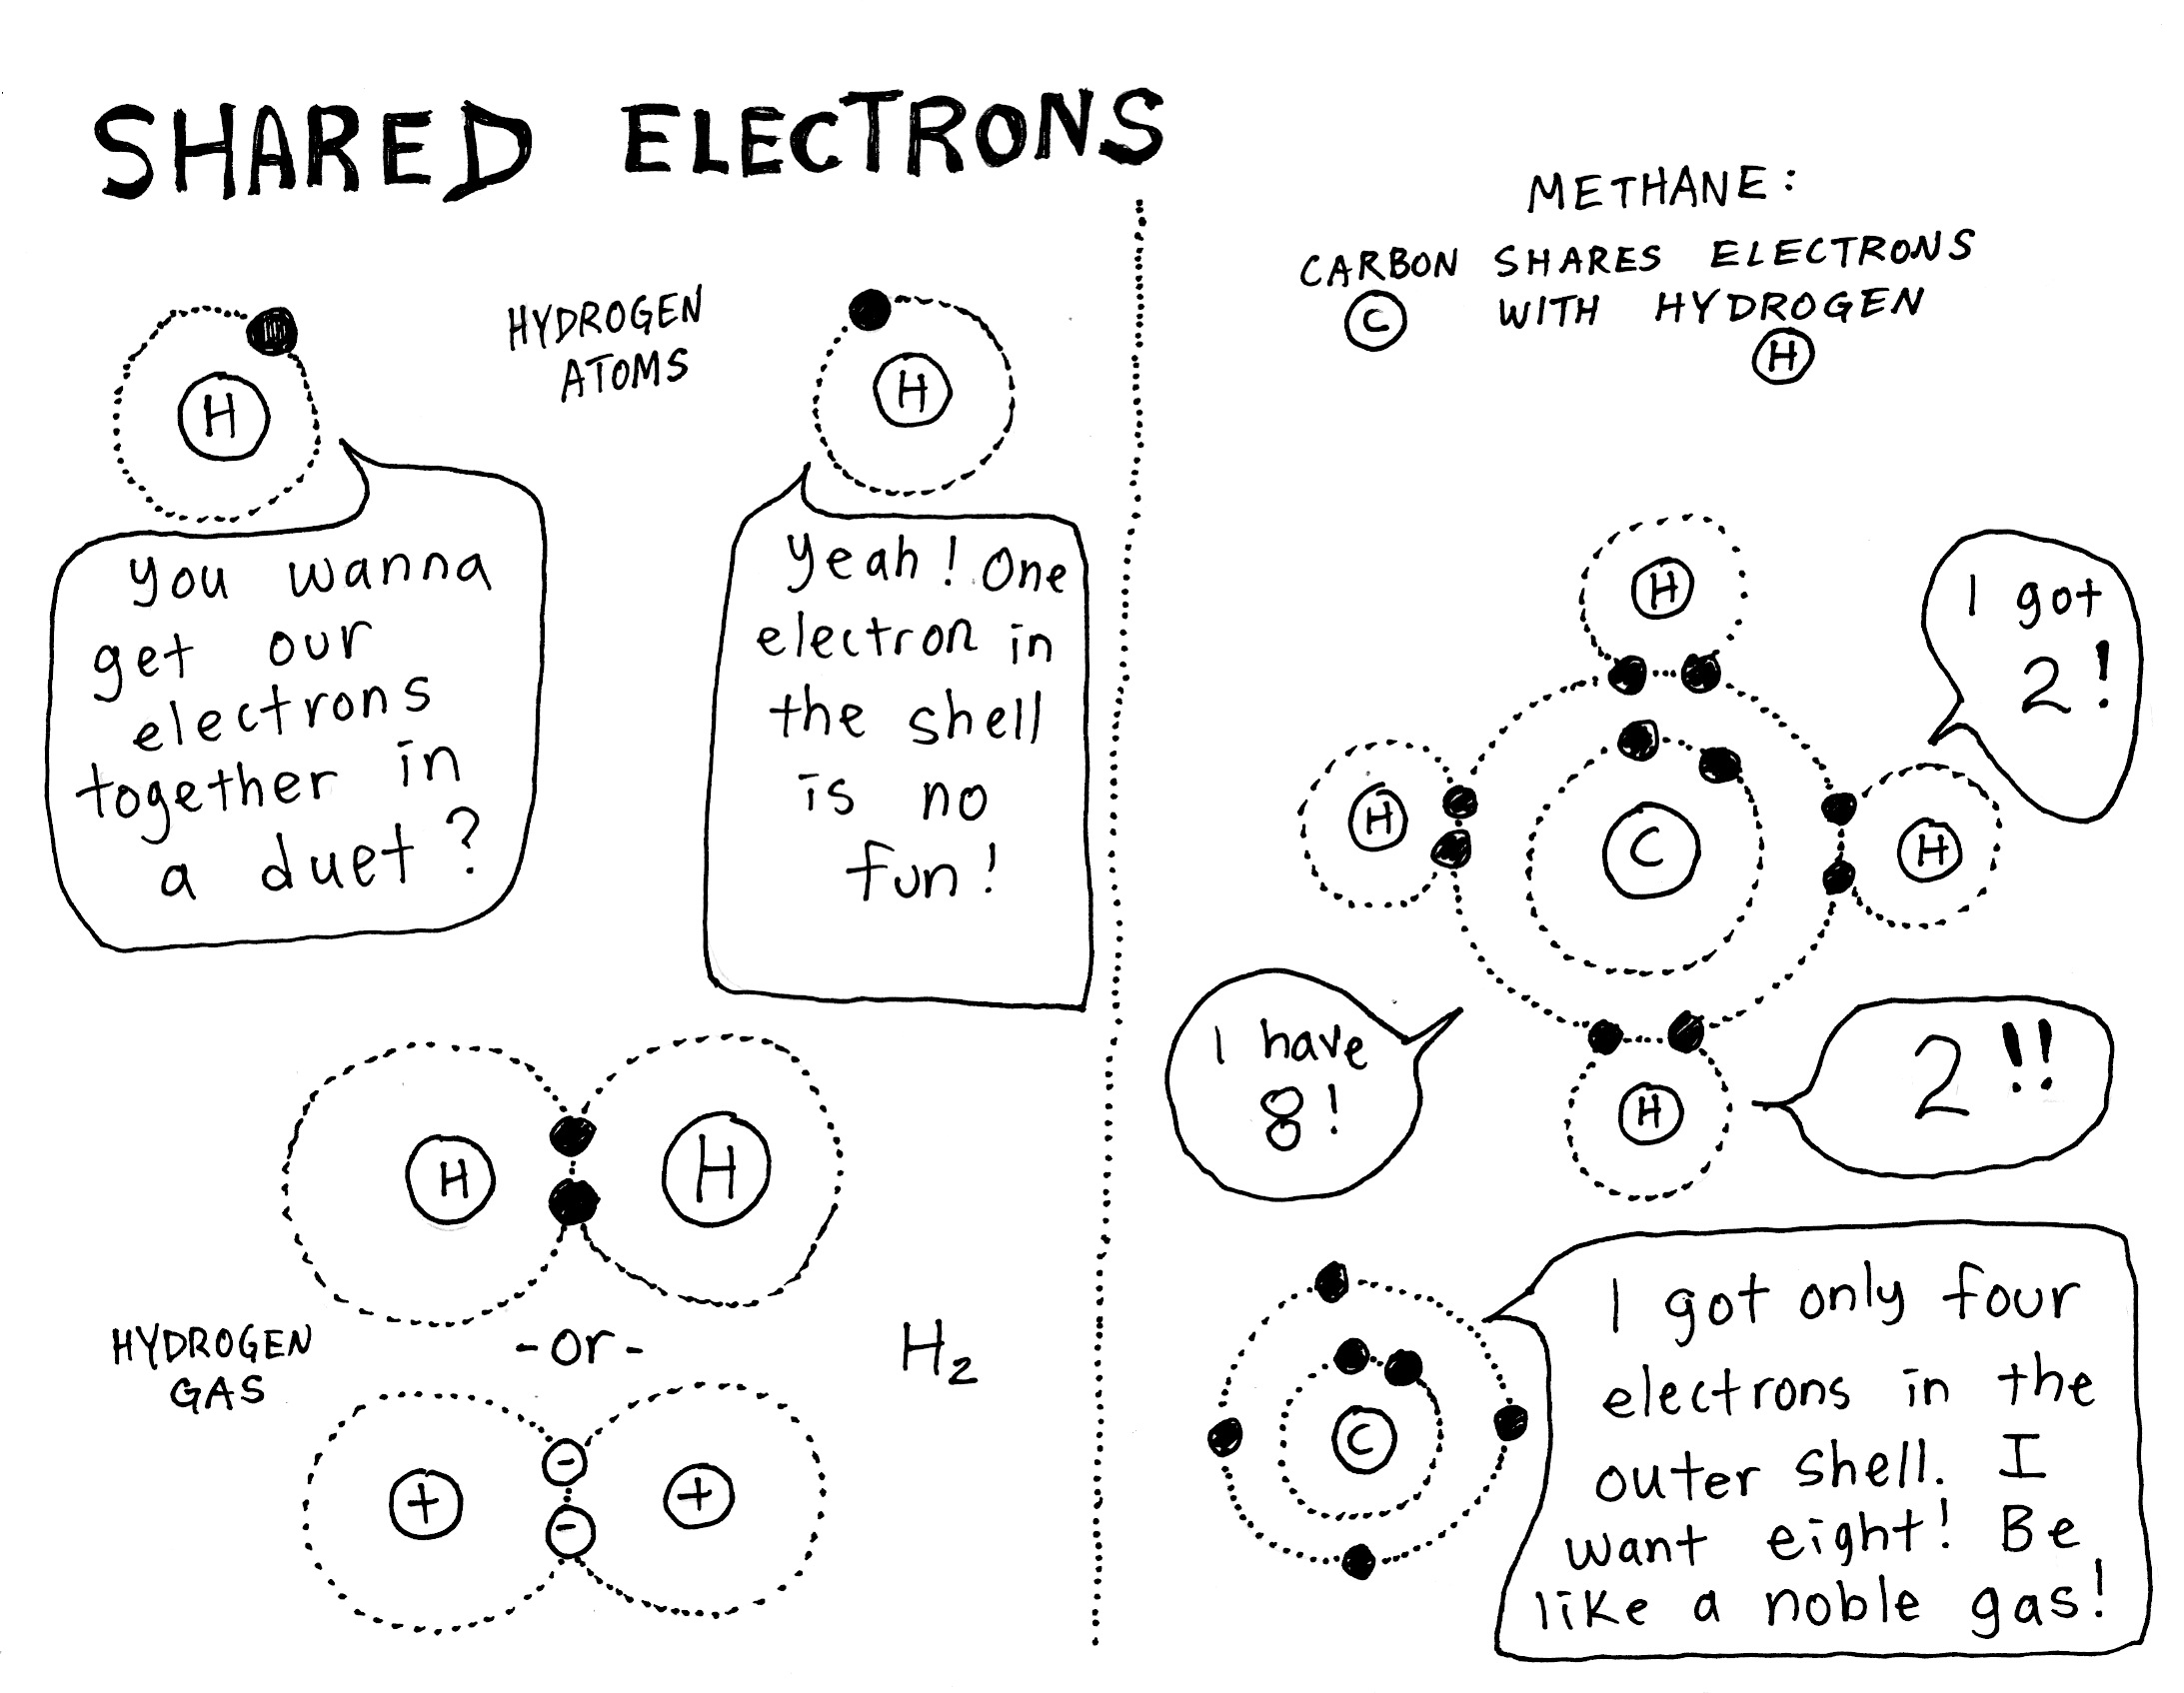 SHARED ELECTRONS
HYDROGEN
ATOMS
H
H
you wanna
get our
electrons
together in
a duet?
Yeah! One
electron in
the shell
is no
fun!
H
H
HYDROGEN
GAS
-or-
H₂
+
-
-
+
METHANE:
CARBON SHARES ELECTRONS
C
WITH HYDROGEN
H
H
I got
2!
H
C
H
I have
8!
H
2!!
C
I got only four
electrons in the
outer shell. I
want eight! Be
like a noble gas!